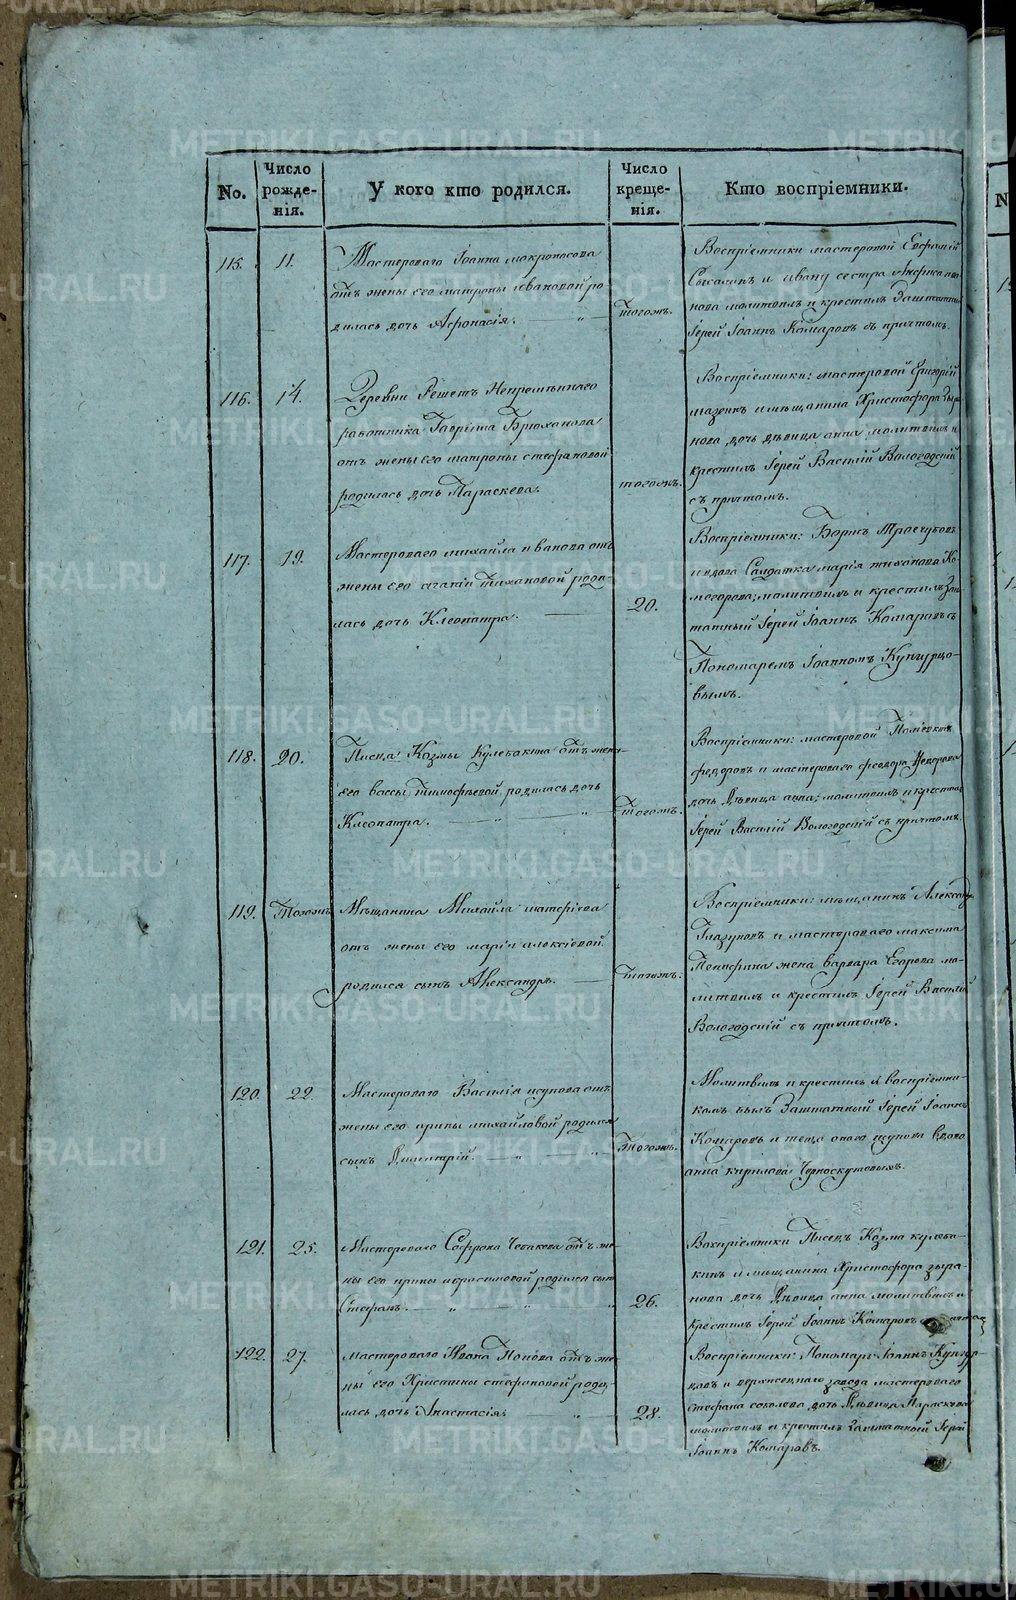 No.
Число рожде- нія.
У кого кто родился.
Число креще- нія.
Кто воспріемники.
115.
11.
Мастероваго Іоанна мокроносова
отъ жены его матроны ивановой ро
дилась дочь Афонасія.
тогожъ.
Воспріемники мастеровой
и ивану сестра Анфиса ива
нова молитвилъ и крестилъ Заштатный
Іерей Іоаннъ Комаровъ съ причтомъ.
116.
14.
Деревни Решетъ Непременнаго
работника Гавріила Брюханова
отъ жены его матроны стефановой
родилась дочь Параскева.
тогожъ.
Воспріемники: мастеровой Григорій
и мещанина Христофора Зыр
нова дочь девица анна, молитвилъ и
крестилъ Іерей Василій Вологодскій
съ причтомъ.
117.
19.
Мастероваго михайла иванова отъ
жены его агапіи тихановой роди-
лась дочь Клеопатра.
20.
Воспріемники: Борисъ
и вдова Салдатка марія тиханова Ко-
могорова; молитвилъ и крестилъ Заш-
татный Іерей Іоаннъ Комаровъ съ
Пономаремъ Іоанномъ Кунгурцо-
вымъ.
118.
20.
Писца Козмы Кулебакина отъ жены
его вассы тимофеевой, родилась дочь
Клеопатра.
тогожъ.
Воспріемники: мастеровой
федоровъ и мастероваго феодора
дочь Девица анна; молитвилъ и крестилъ
Іерей Василій Вологодскій съ причтомъ.
119.
Тогожъ
Мещанина Михайла матфіева
отъ жены его маріи алексіевой
родился сынъ Александръ.
тогожъ.
Воспріемники: мещанинъ Александръ
Глазуновъ и мастероваго максима
жена варвара Егорова мо-
литвилъ и крестилъ Іерей Василій
Вологодскій съ причтомъ.
120.
22.
Мастероваго Василія исупова отъ
жены его ирины михайловой родился
сынъ Димитрій.
Тогожъ.
Молитвилъ и крестилъ и воспріемни-
комъ былъ Заштатный Іерей Іоаннъ
Комаровъ и теща онаго исупова вдова
анна кирилова Черноскутовыхъ.
121.
25.
Мастероваго Софрона Чебакова отъ же-
ны его ирины ефрасимовой родился сынъ
Стефанъ.
26.
Воспріемники Писецъ Козма кулеба-
кинъ и мещанина Христофора зыра-
нова дочь Девица анна молитвилъ и
крестилъ Іерей Іоаннъ Комаровъ
122.
27.
мастероваго Ивана Попова отъ же-
ны его Христины стефановой роди-
лась дочь Анастасія.
28.
Воспріемники: Пономарь Іоаннъ Кунгур-
цовъ и верхисецкаго завода мастероваго
стефана соколова дочь Девица Параскева
молитвилъ и крестилъ Заштатной Іерей
Іоаннъ Комаровъ.
METRIKI.GASO-URAL.RU